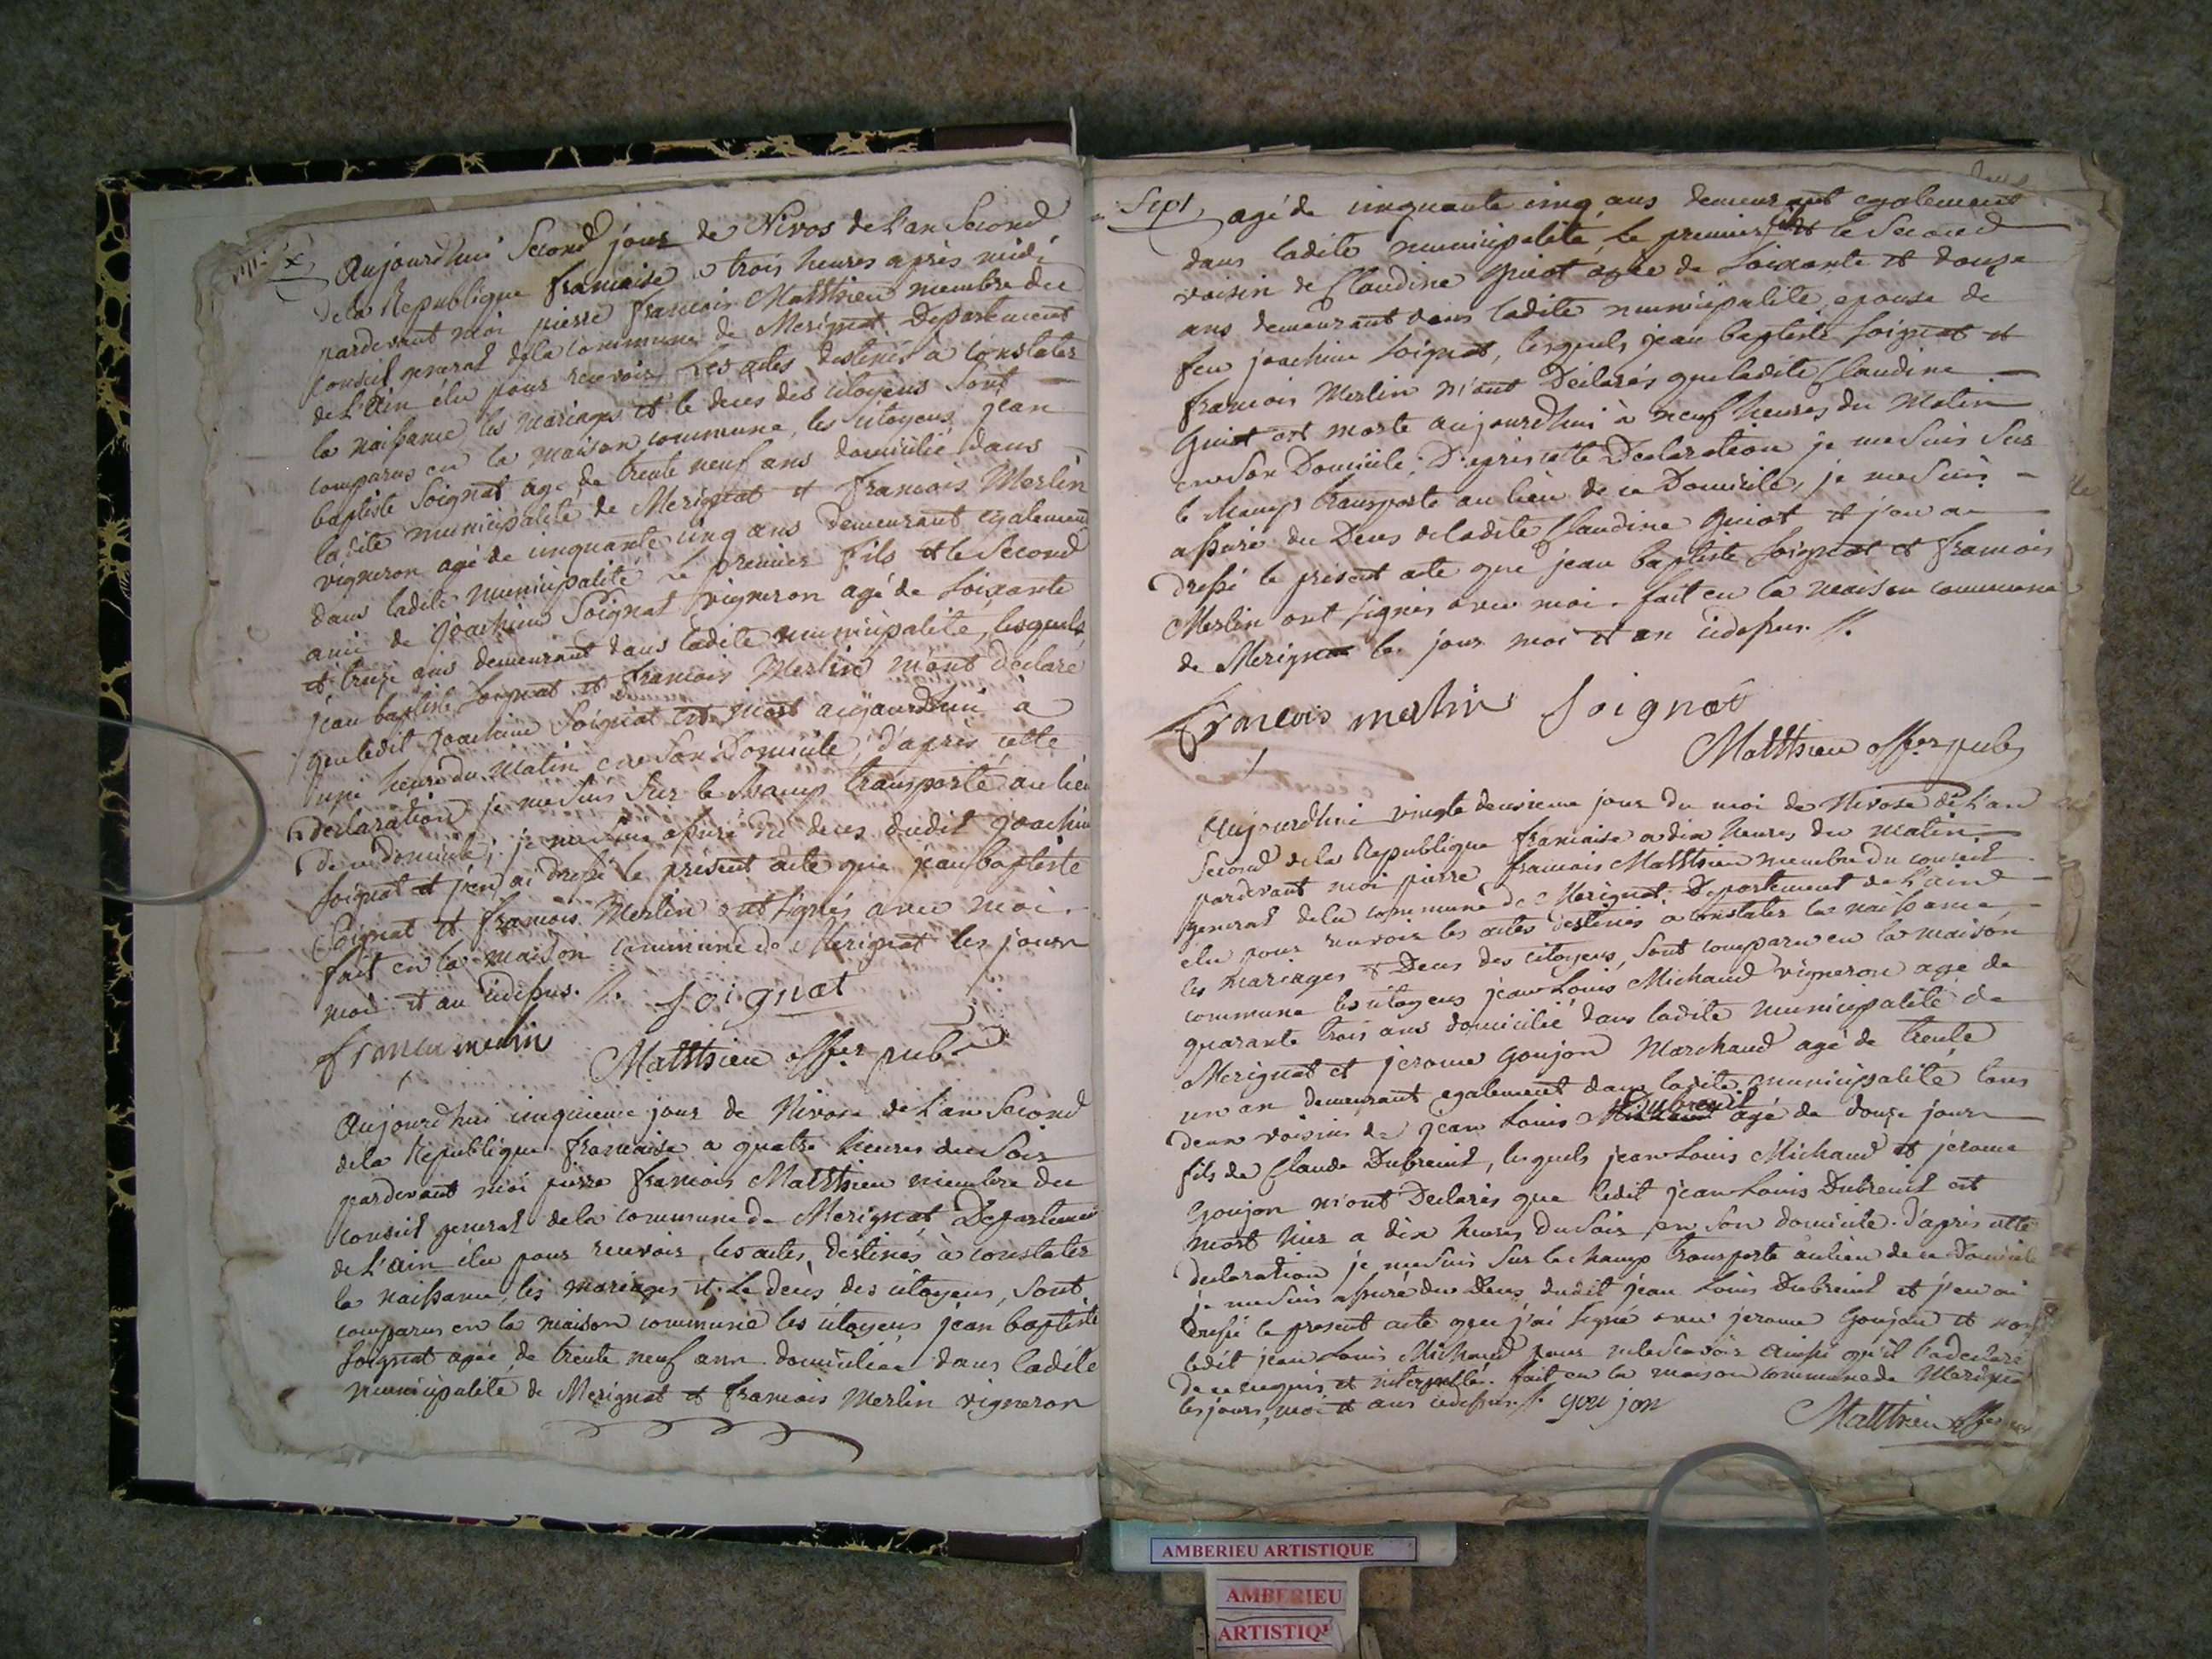 Aujourdhui Second jour de Nivos de L'an Second
dela Republique francaise a trois heures après midi
pardevant moi pierre francois Matthieu membre du
conseil general dela commune de Merignat Departement
de L'Ain élu pour recevoir Les actes destinés à constater
la naissance les mariages et le deces des citoyens sont
comparus en la maison commune, les citoyens jean
baptiste Soignat agé de trente neuf ans domicilié dans
ladite municipalité de Merignat et francois Merlin
vigneron agé de cinquante cinq ans demeurant egalement
dans ladite municipalité le premier fils et le Second
ami de joachim Soignat vigneron agé de soixante
et treize ans demeurant dans ladite municipalité, lesquels
jean baptiste Soignat et francois Merlin m'ont declaré
que ledit joachim Soignat est mort aujourdhui a
une heure du matin en son Domicile, d'après cette
declaration je me suis sur le champ transporté au lieu
de ce domicile, je me suis assuré du deces dudit joachim
soignat et j'en ai dressé le présent acte que jean baptiste
Soignat et francois Merlin ont signés avec moi.
fait en la maison commune de Merignat les jour
moi et an cidessus. //. Soignat
francois merlin
Matthieu offer pub
Aujourdhui cinquieme jour de Nivose de L'an Second
dela Republique francaise a quatre heures du Soir
pardevant moi pierre francois Matthieu membre du
conseil general dela commune de Merignat Departement
de L'ain élu pour recevoir les actes destinés à constater
la naissance, les mariages et le deces des citoyens, sont
comparus en la maison commune les citoyens jean baptiste
soignat agée de trente neuf ann domiciliée dans ladite
municipalité de Merignat et francois Merlin vigneron
Sept
agé de cinquante cinq ans demeurant egalement
dans ladite municipalité, le premier fils et le Second
voisin de Claudine Guiot agée de soixante et douze
ans demeurant dans ladite municipalité, epouse de
feu joachim soignat, lesquels jean baptiste soignat et
francois Merlin m'ont Déclarés que ladite Claudine
Guiot est morte aujourdhui à neuf heures du Matin
en son Domicile. D'apris cette Declaration je me suis sur
le champ transporté au lieu de ce Domicile, je me suis
assuré du Deces de ladite Claudine Guiot et j'en ai
dressé le présent acte que jean baptiste soignat et francois
Merlin ont signés avec moi. fait en la maison commune
de Merignat les jour moi et an cidessus. //.
francois merlin Soignat
Matthieu offer pub
Aujourdhui vingte deuxieme jour du moi de Nivose de L'an
Second dela Republique francaise a dix heures du matin
pardevant moi pierre francois Matthieu membre du conseil
general dela commune de Merignat Departement de L'ain
élu pour recevoir les actes destinés a constater la naissance,
les mariages & Deces des citoyens, sont comparu en la maison
commune les citoyens jean Louis Michaud vigneron agé de
quarante trois ans domicilié dans ladite municipalité de
Merignat et jerome Goujon Marchand agé de trente
un an demeurant egalement dans ladite municipalité tous
deux voisins de jean Louis Dubreuil agé de douze jours
fils de Claude Dubreuil, lesquels jean Louis Michaud et jerome
Goujon m'ont Declarés que ledit jean Louis Dubreuil est
mort hier a dix heures du Soir, en son domicile. d'apris cette
declaration je me suis sur le champ transporté au lieu de ce Domicile
je me suis assuré du Deces dudit jean Louis Dubreuil et j'en ai
dressé le present acte que j'ai signé avec jerome Goujon et non
ledit jean Louis Michaud pour ne le scavoir ainsi qu'il l'a declaré
de ce enquis et interpellé. fait en la maison commune de Merignat
les jours, moi et ans cidessus. //. gou jon
Matthieu offer
AMBERIEU ARTISTIQUE
AMBERIEU
ARTISTIQ